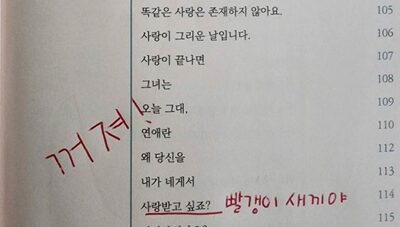 똑같은 사랑은 존재하지 않아요. 105
사랑이 그리운 날입니다. 106
사랑이 끝나면 107
그녀는 108
오늘 그대, 109
연애란 110
왜 당신을 111
내가 네게서 112
사랑받고 싶죠? 113
114
115
꺼져!
빨갱이 새끼야